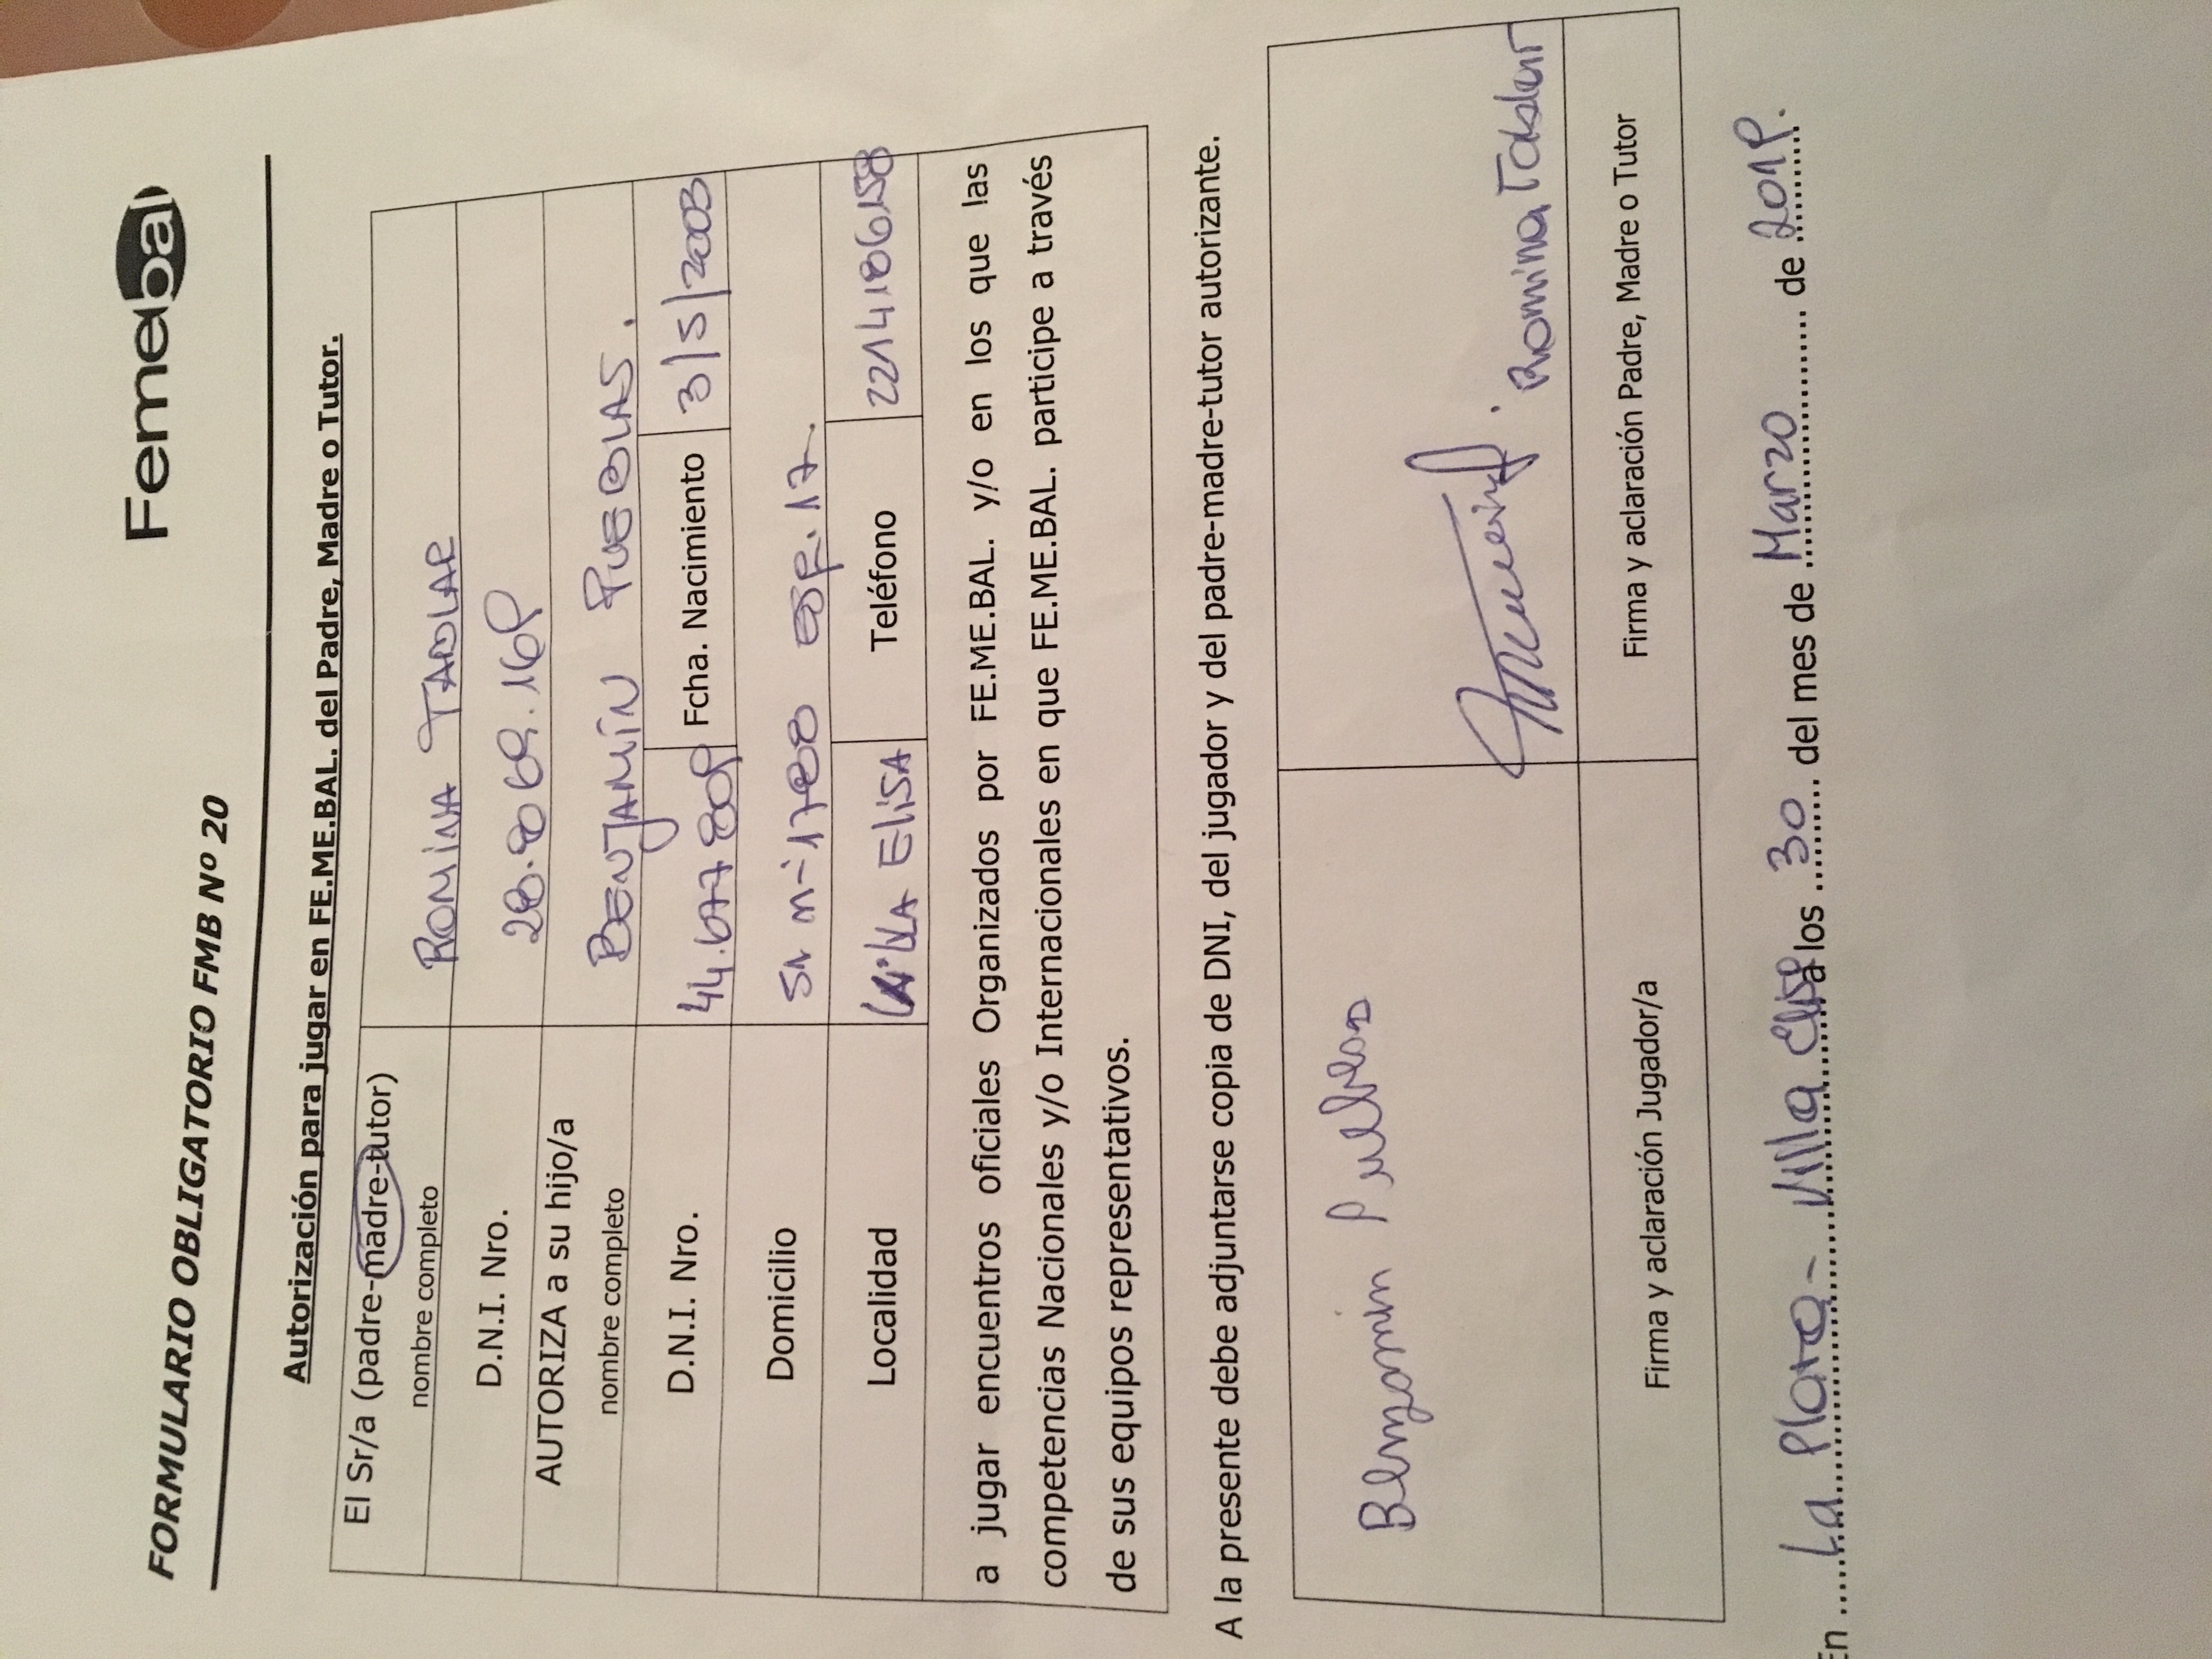 Femebal
FORMULARIO OBLIGATORIO FMB Nº 20
Autorización para jugar en FE.ME.BAL. del Padre, Madre o Tutor.
El Sr/a (padre-madre-tutor)
nombre completo
ROMINA TADLAR
D.N.I. Nro.
28.806.169
AUTORIZA a su hijo/a
nombre completo
BENJAMÍN PUEBLAS.
D.N.I. Nro. 44.677809 Fcha. Nacimiento 3/5/2003
Domicilio 51 n-1788 esp. 17.
Localidad Villa ELISA Teléfono
a jugar encuentros oficiales Organizados por FE.ME.BAL. y/o en los que las
competencias Nacionales y/o Internacionales en que FE.ME.BAL. participe a través
de sus equipos representativos.
A la presente debe adjuntarse copia de DNI, del jugador y del padre-madre-tutor autorizante.
Benjamin Pueblas
Romina
Firma y aclaración Jugador/a
Firma y aclaración Padre, Madre o Tutor
En La Plata - Villa Elisa a los 30 del mes de Marzo de 2019.